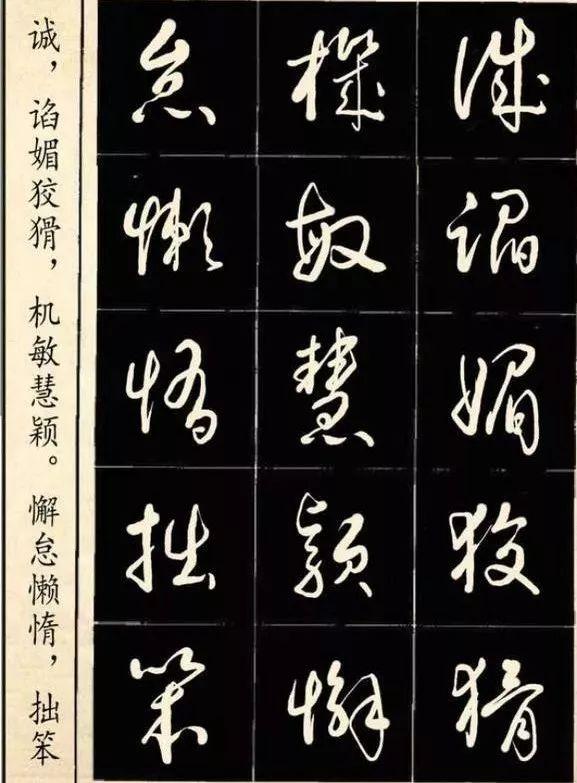 诚谄媚狡猾
機敏慧颖懈
怠懒惰拙笨
诚，谄媚狡猾，机敏慧颖。懈怠懒惰，拙笨